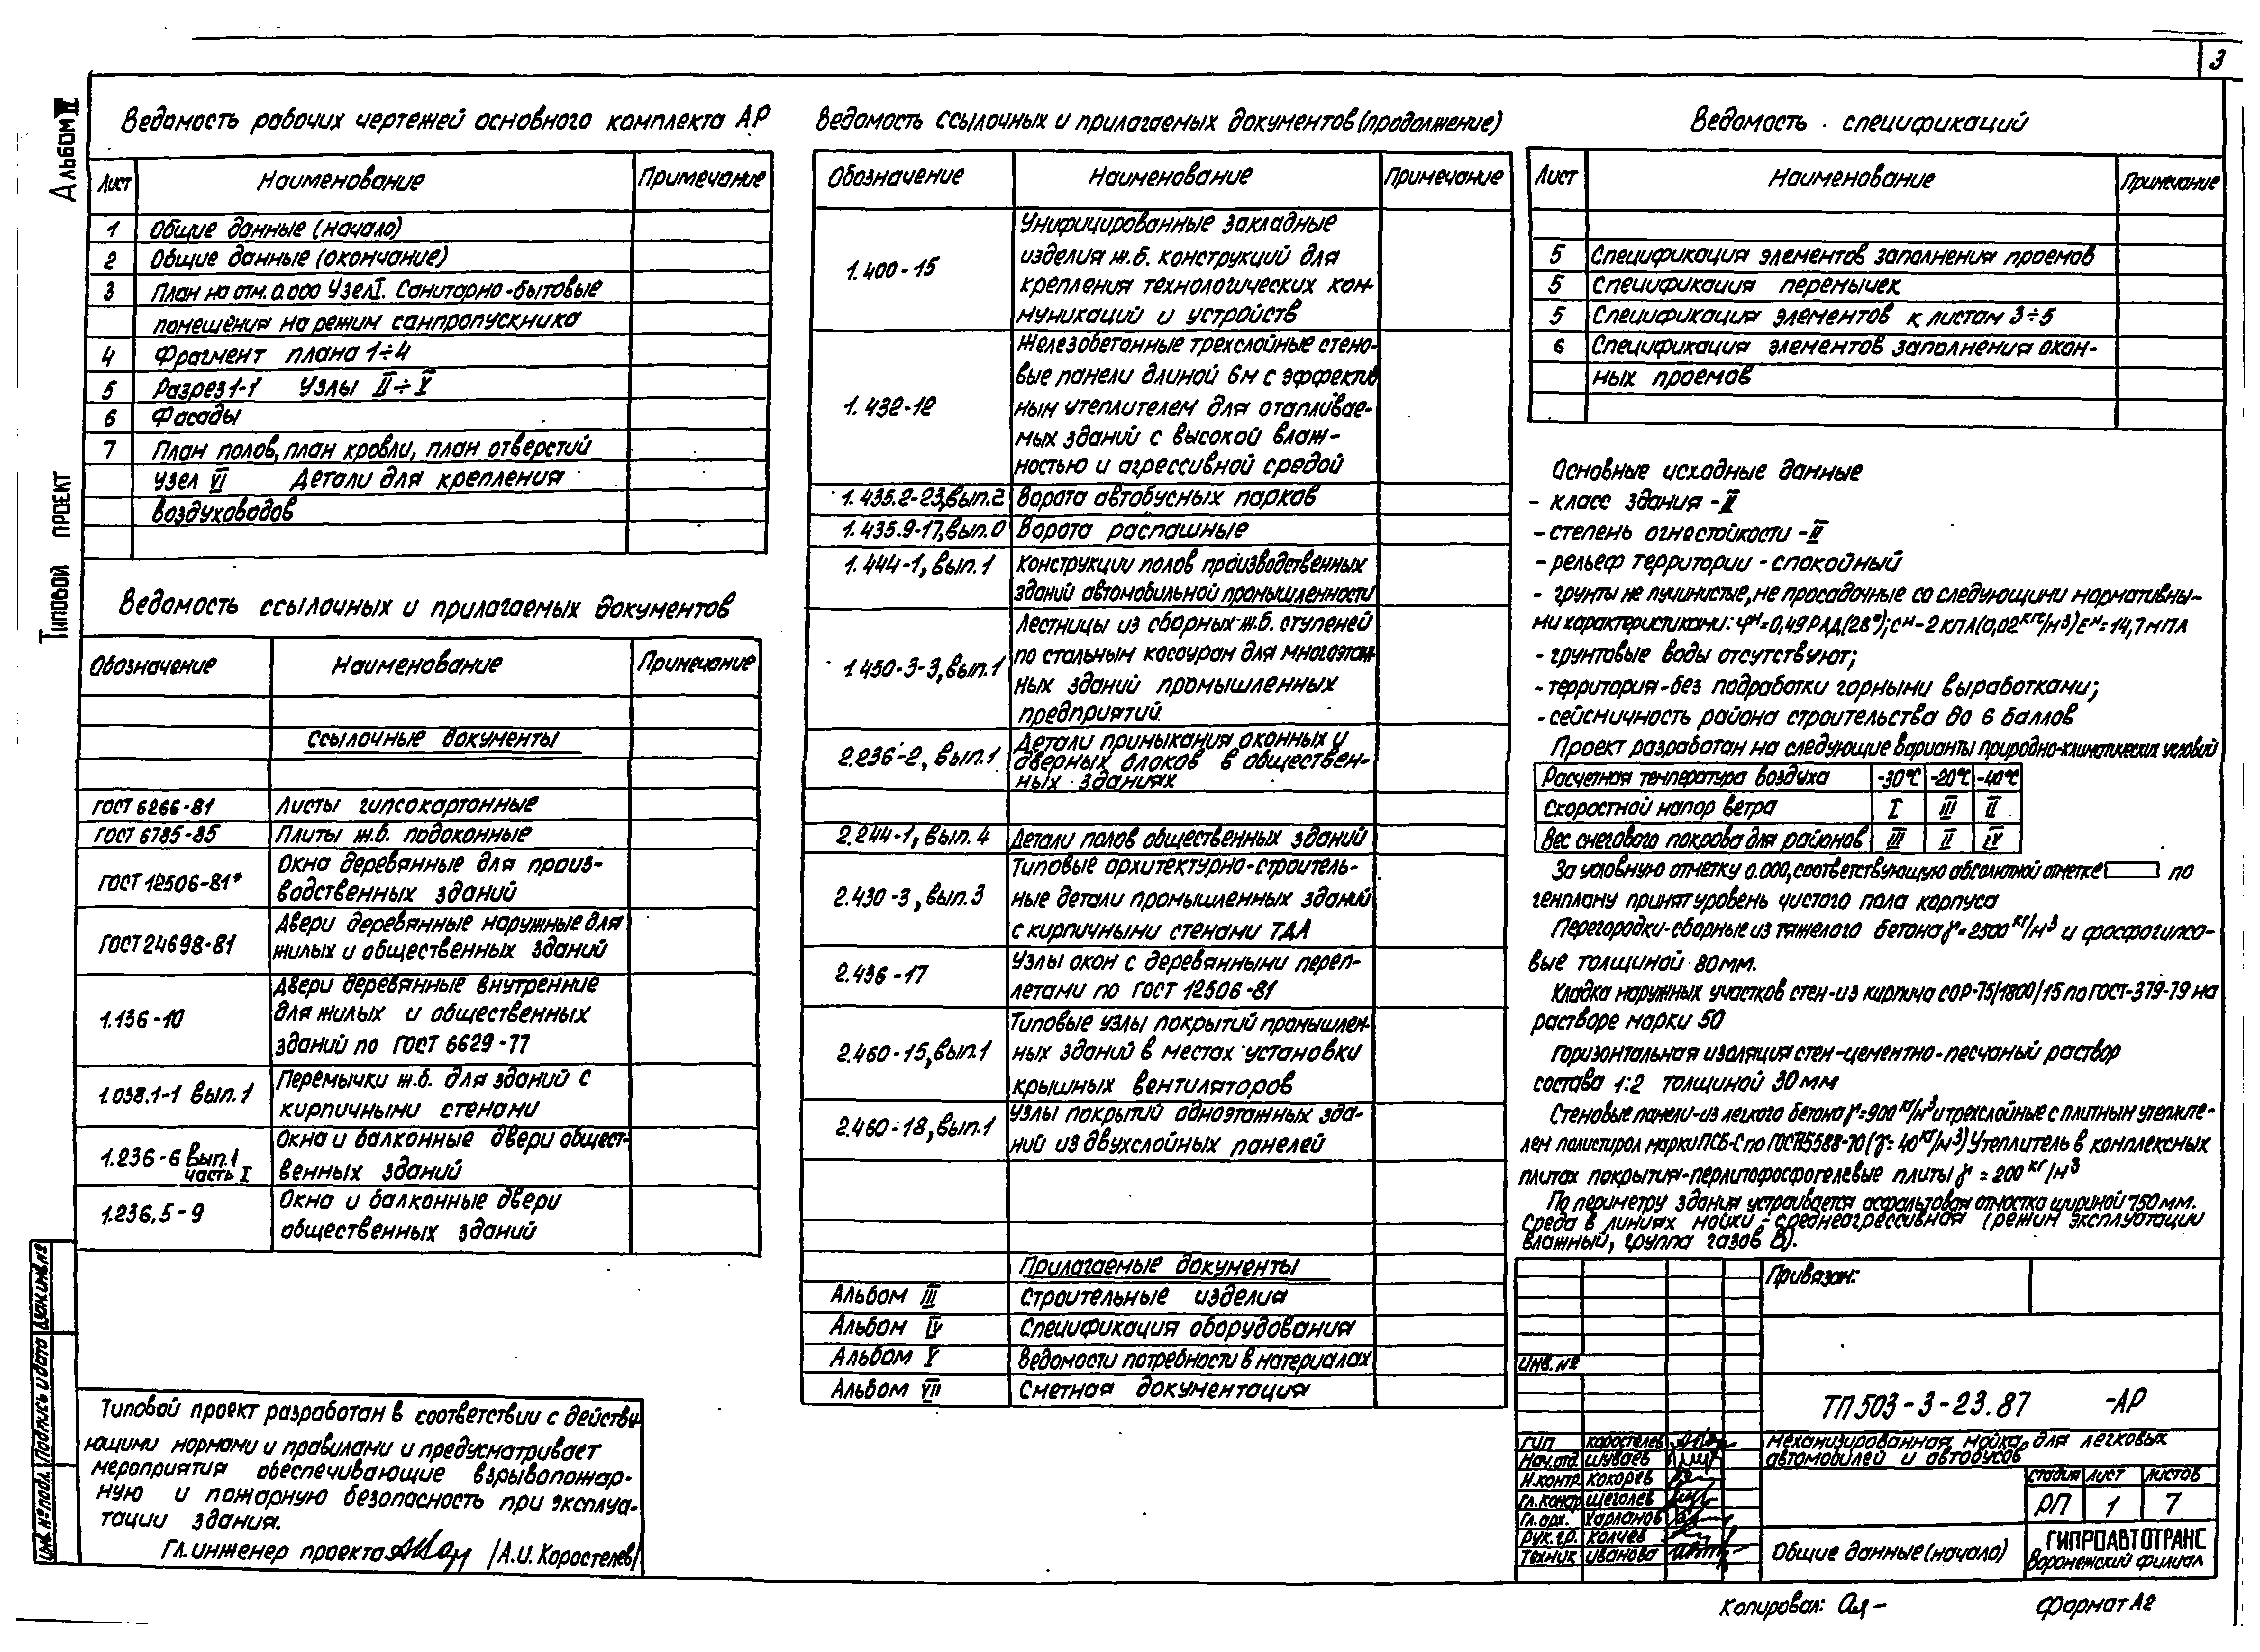 3
Альбом II
Типовой проект
Ведомость рабочих чертежей основного комплекта АР
Лист Наименование Примечание
1 Общие данные (начало)
2 Общие данные (окончание)
3 План на отм. 0.000 Узел I. Санитарно-бытовые
помещения на режим санпропускника
4 Фрагмент плана 1÷4
5 Разрез 1-1 Узлы II÷V
6 Фасады
7 План полов, план кровли, план отверстий
узел VI Детали для крепления
воздуховодов
Ведомость ссылочных и прилагаемых документов
Обозначение Наименование Примечание
Ссылочные документы
ГОСТ 6266-81 Листы гипсокартонные
ГОСТ 6785-85 Плиты ж.б. подоконные
ГОСТ 12506-81* Окна деревянные для произ-
водственных зданий
ГОСТ 24698-81 Двери деревянные наружные для
жилых и общественных зданий
1.136-10 Двери деревянные внутренние
для жилых и общественных
зданий по ГОСТ 6629-77
1.038.1-1 вып.1 Перемычки ж.б. для зданий с
кирпичными стенами
1.236-6 вып.1 часть I Окна и балконные двери общест-
венных зданий
1.236.5-9 Окна и балконные двери
общественных зданий
Типовой проект разработан в соответствии с действу-
ющими нормами и правилами и предусматривает
мероприятия обеспечивающие взрывопожар-
ную и пожарную безопасность при эксплуа-
тации здания.
Гл. инженер проекта /А.И. Коростелев/
Ведомость ссылочных и прилагаемых документов (продолжение)
Обозначение Наименование Примечание
1.400-15 Унифицированные закладные
изделия ж.б. конструкций для
крепления технологических ком-
муникаций и устройств
1.432-12 Железобетонные трехслойные стено-
вые панели длиной 6м с эффектив
ным утеплителем для отапливае-
мых зданий с высокой влаж-
ностью и агрессивной средой
1.435.2-23, вып.2 Ворота автобусных парков
1.435.9-17, вып.0 Ворота распашные
1.444-1, вып.1 Конструкции полов производственных
зданий автомобильной промышленности
1.450-3-3, вып.1 Лестницы из сборных ж.б. ступеней
по стальным косоурам для многоэтаж
ных зданий промышленных
предприятий
2.236-2, вып.1 Детали примыкания оконных и
дверных блоков в обществен-
ных зданиях
2.244-1, вып.4 Детали полов общественных зданий
2.430-3, вып.3 Типовые архитектурно-строитель-
ные детали промышленных зданий
с кирпичными стенами ТДА
2.436-17 Узлы окон с деревянными переп-
летами по ГОСТ 12506-81
2.460-15, вып.1 Типовые узлы покрытий промышлен-
ных зданий в местах установки
крышных вентиляторов
2.460-18, вып.1 Узлы покрытий одноэтажных зда-
ний из двухслойных панелей
Прилагаемые документы
Альбом III Строительные изделия
Альбом IV Спецификация оборудования
Альбом V Ведомости потребности в материалах
Альбом VII Сметная документация
Ведомость спецификаций
Лист Наименование Примечание
5 Спецификация элементов заполнения проемов
5 Спецификация перемычек
5 Спецификация элементов к листам 3÷5
6 Спецификация элементов заполнения окон-
ных проемов
Основные исходные данные
- класс здания - II
- степень огнестойкости - II
- рельеф территории - спокойный
- грунты не пучинистые, не просадочные со следующими нормативны-
ми характеристиками: φн=0,49 РАД (28°); Сн-2 КПА (0,02 кгс/м3) Ен=14,7 МПА
- грунтовые воды отсутствуют;
- территория - без подработки горными выработками;
- сейсмичность района строительства до 6 баллов
Проект разработан на следующие варианты природно-климатических условий
Расчетная температура воздуха -30°С -20°С -40°С
Скоростной напор ветра I III II
Вес снегового покрова для районов III II IV
За условную отметку 0.000, соответствующую абсолютной отметке по
генплану принят уровень чистого пола корпуса
Перегородки-сборные из тяжелого бетона γ=2500 кг/м3 и фосфогипсо-
вые толщиной 80мм.
Кладка наружных участков стен-из кирпича СОР-75/1800/15 по ГОСТ-379-79 на
растворе марки 50
Горизонтальная изоляция стен-цементно-песчаный раствор
состава 1:2 толщиной 30мм
Стеновые панели-из легкого бетона γ=900 кг/м3 и трехслойные с плитным утеплите-
лем полистирол марки ПСБ-С по ГОСТ 15588-70 (γ=40 кг/м3) Утеплитель в комплексных
плитах покрытия-перлитофосфогелевые плиты γ=200 кг/м3
По периметру здания устраивается асфальтовая отмостка шириной 750мм.
Среда в линиях мойки - среднеагрессивная (режим эксплуатации
влажный, группа газов В).
Привязан:
Инв. №
ТП 503-3-23.87 -АР
ГИП Коростелев
Нач.отд. Шуваев
Н.контр. Кокорев
Гл.констр Щеголев
Гл.арх. Харланов
Рук.гр. Колчев
Техник Иванова
Механизированная мойка для легковых
автомобилей и автобусов
стадия лист листов
РП 1 7
Общие данные (начало)
ГИПРОАВТОТРАНС
Воронежский филиал
Инв. № подл. Подпись и дата Взам.инв.№
Копировал:
Формат А2